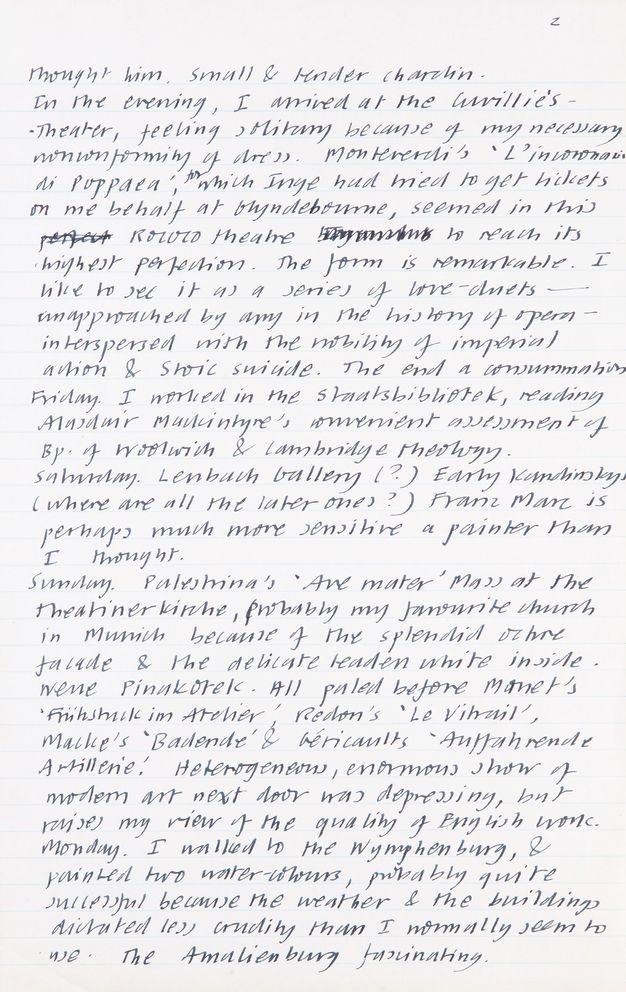 2
thought him. Small & tender chardin.
In the evening, I arrived at the Cuvilliés-
Theater, feeling solitary because of my necessary
nonconformity of dress. Monteverdi's 'L'incoronazi
di Poppaea', for which Inge had tried to get tickets
on me behalf at Glyndebourne, seemed in this
perfect Rococo theatre to reach its
highest perfection. The form is remarkable. I
like to see it as a series of love-duets —
unapproached by any in the history of opera –
interspersed with the nobility of imperial
action & Stoic suicide. The end a consummation
Friday. I worked in the Staatsbibliotek, reading
Alasdair Mackintyre's convenient assessment of
Bp. of Woolwich & Cambridge theology.
Saturday. Lenbach Gallery (?) Early Kandinskys
(where are all the later ones?) Franz Marc is
perhaps much more sensitive a painter than
I thought.
Sunday. Palestrina's 'Ave mater' Mass at the
theatinerkirche, probably my favourite church
in Munich because of the splendid ochre
facade & the delicate leaden white inside.
Neue Pinakotek. All paled before Manet's
'Frühstuck im Atelier', Redon's 'Le Vitrail',
Macke's 'Badende' & Géricaults 'Auffahrende
Artillerie'. Heterogeneous, enormous show of
modern art next door was depressing, but
raises my view of the quality of English work.
Monday. I walked to the Nymphenburg, &
painted two water-colours, probably quite
successful because the weather & the buildings
dictated less crudity than I normally seem to
use. The Amalienburg fascinating.